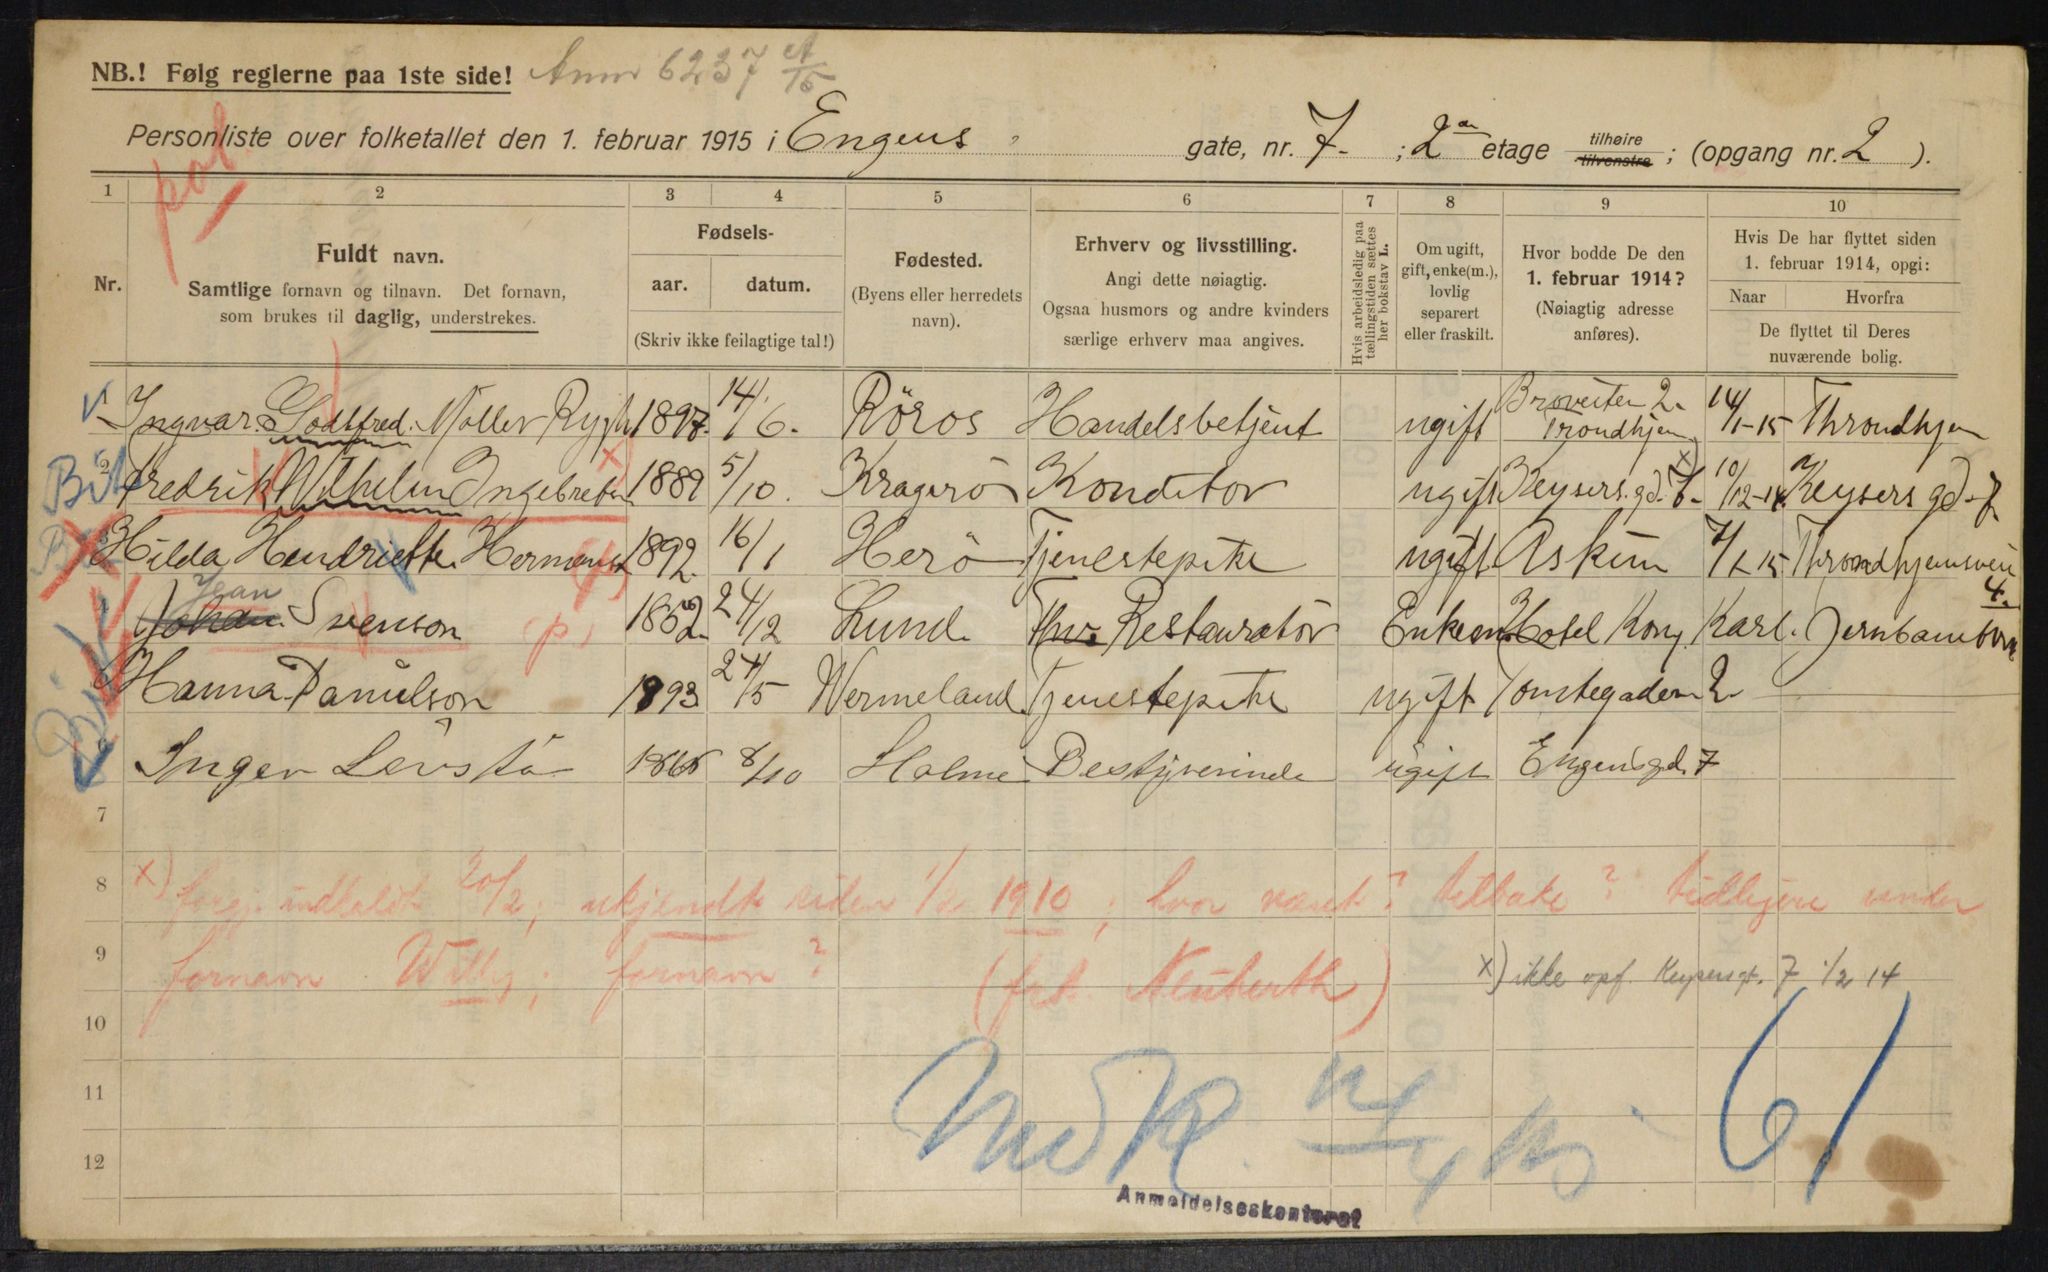 NB.! Følg reglerne paa 1ste side! Anm 6237 A/15
Personliste over folketallet den 1. februar 1915 i Engens gate, nr. 7- ; 2den etage tilhøire tilvenstre ; (opgang nr. 2 ).
pol.
1 2 3 4 5 6 7 8 9 10
Nr.
Fuldt navn.
Samtlige fornavn og tilnavn. Det fornavn,
som brukes til daglig, understrekes.
Fødsels-
aar. datum.
(Skriv ikke feilagtige tal!)
Fødested.
(Byens eller herredets
navn).
Erhverv og livsstilling.
Angi dette nøiagtig.
Ogsaa husmors og andre kvinders
særlige erhverv maa angives.
Hvis arbeidsledig paa
tællingstiden sættes
her bokstav L.
Om ugift,
gift, enke(m.),
lovlig
separert
eller fraskilt.
Hvor bodde De den
1. februar 1914?
(Nøiagtig adresse
anføres).
Hvis De har flyttet siden
1. februar 1914, opgi:
Naar Hvorfra
De flyttet til Deres
nuværende bolig.
1 Ingvar Godtfred Møller Rygh 1897. 14/6. Röros Handelsbetjent ugift Broveiten 2. Trondhjem 14/1-15 Throndhjem
2 Fredrik Wilhelm Ingebretsen x) 1889 5/10. Kragerö Konditor ugift Keysers gd. 7. x) 10/12-14 Keysers gd. 7
Hilda Hendriette Hermansen 1892. 16/1 Herö Tjenestepike ugift Askim 7/1 15 Throndhjemsveien 4.
Johan Jean Svenson (p) 1862 24/12 Lund Restauratör Enkem. Hotel Kong Karl. Jernbanetorvet
Hanna Danielson 1893 24/5 Wermeland Tjenestepike ugift Tomtegaden 2
Inger Løvstå 8/10 Holme Bestyrerinde ugift Engensgd. 7
7
8 x) forgj. indkaldt 20/2; ukjendt siden 1/2 1910; hvor været? tilbake? tidligere under
9 fornavn Willy; fornavn? (frk. Neuberth)
x) ikke opf. Keysersgt. 7 1/2 14
10
11
12
61
Anmeldelseskontoret